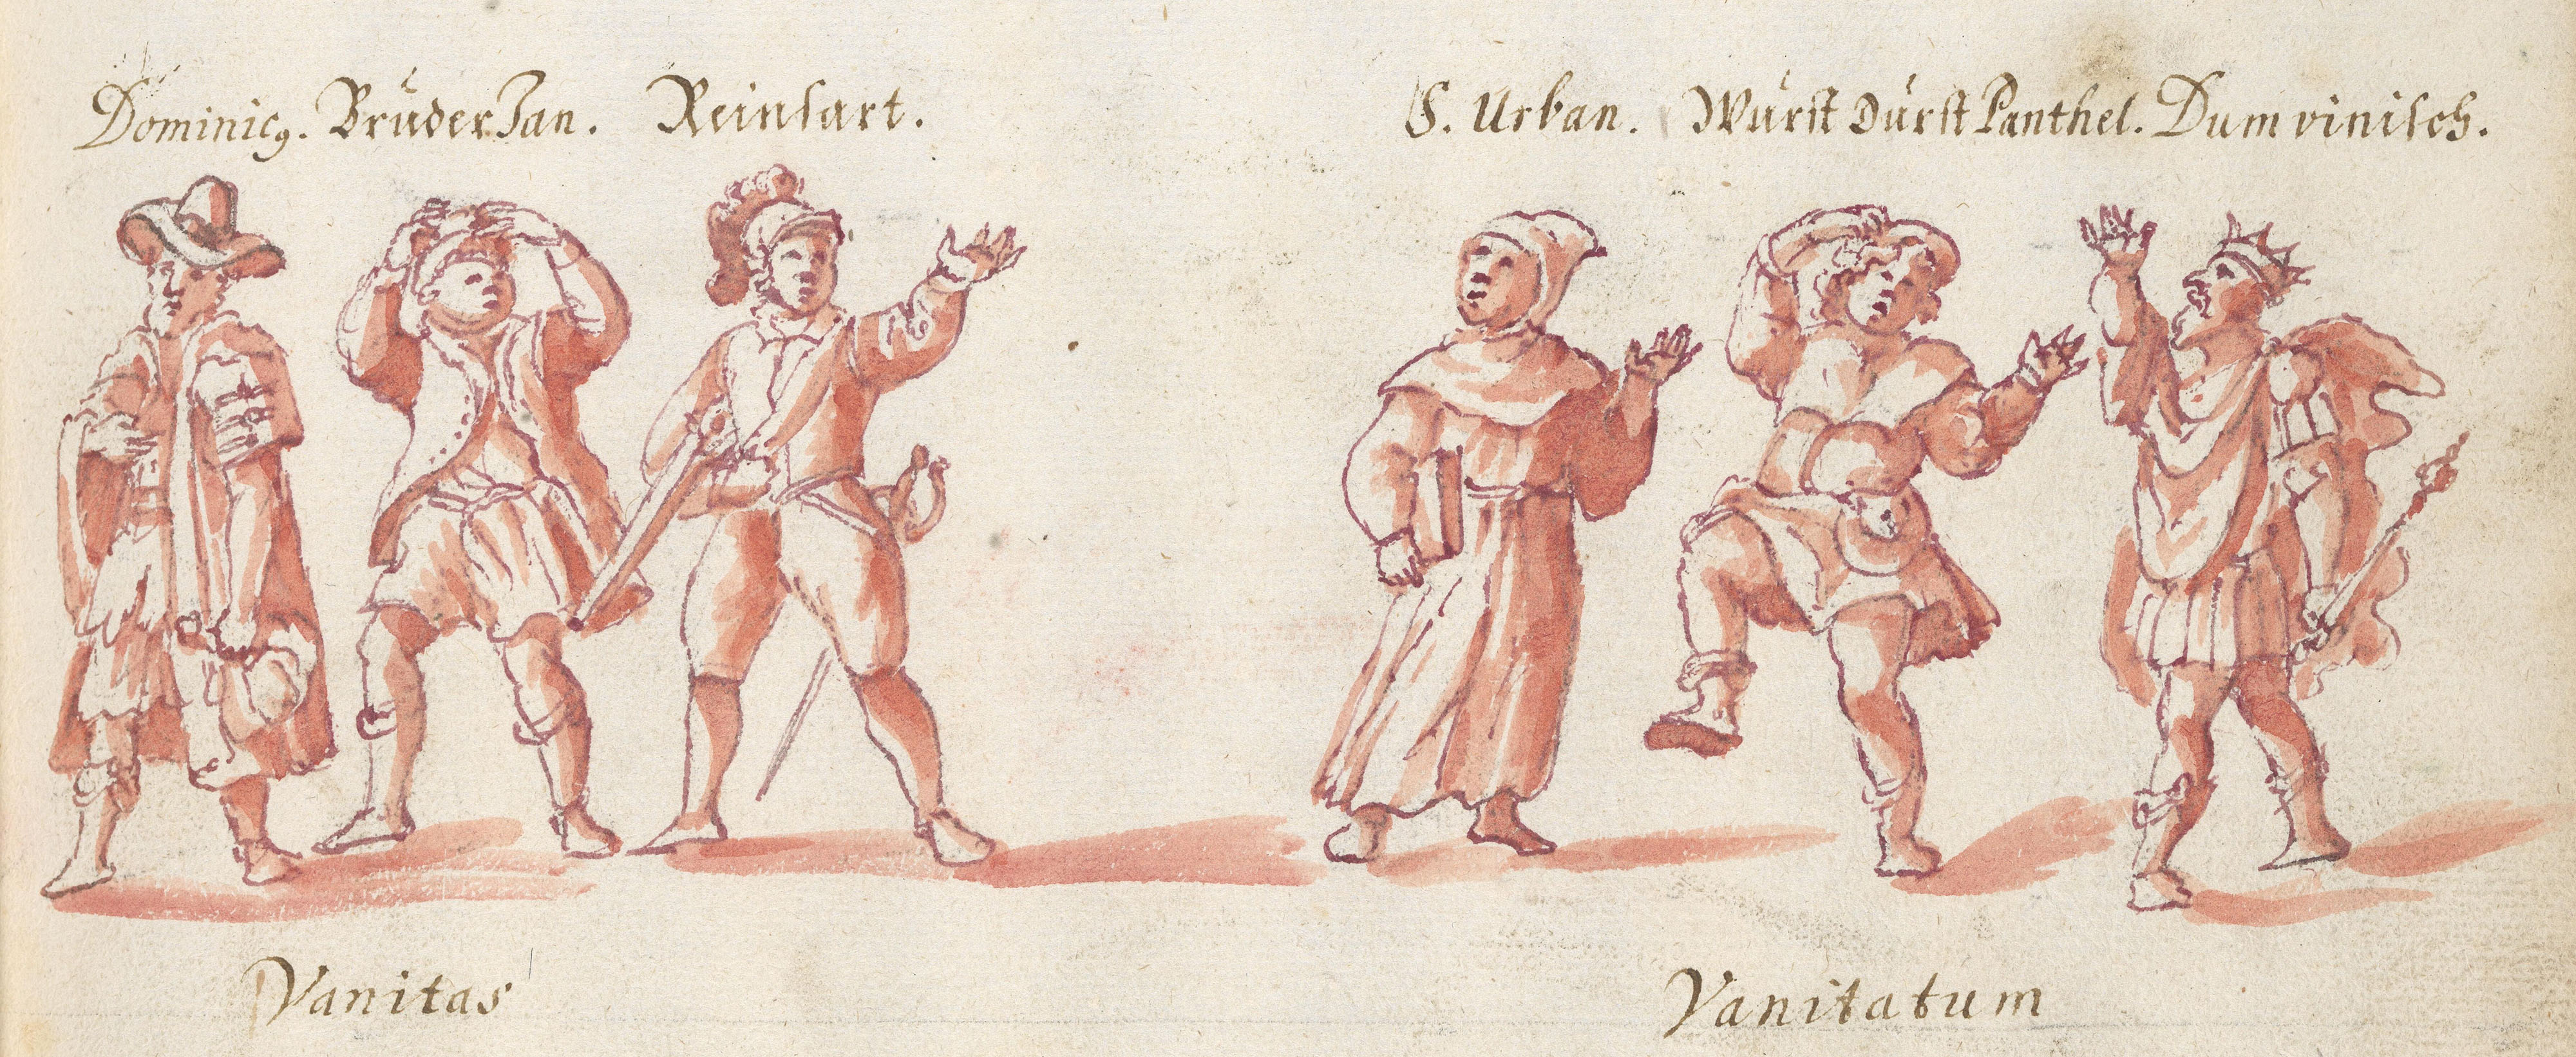 Dominicꝰ. Brŭder Jan. Reinſart.
S. Urban. Wŭrſt Dŭrſt Panthel. Dum viniſch.
Vanitas
Vanitatum